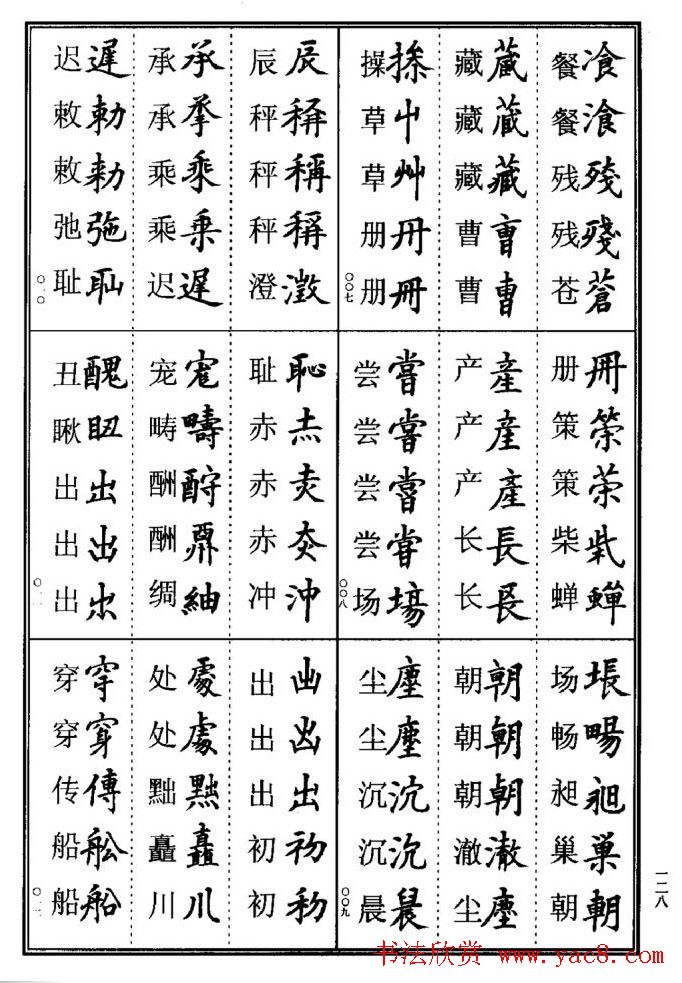 餐飡 餐湌 残殘 残殘 苍蒼
藏蔵 藏蔵 藏藏 曹曹 曹曹
操 草屮 草艸 册冊 册冊
〇〇七
册冊 策 策 柴 蝉蟬
产産 产産 产產 长長 长長
尝嘗 尝嘗 尝嘗 尝甞 场場
〇〇八
场 畅暢 昶昶 巢巢 朝朝
朝朝 朝朝 朝朝 澈澈 尘塵
尘塵 尘塵 沉沉 沉沉 晨晨
〇〇九
辰辰 秤稱 秤稱 秤稱 澄澂
承承 承承 乘乘 乘乗 迟遲
迟遲 敕勅 敕勅 弛弛 耻耻
〇一〇
耻恥 赤赤 赤赤 赤 冲沖
宠寵 畴疇 酬酧 酬 绸紬
丑醜 瞅 出出 出出 出出
〇一一
出出 出出 出出 初初 初初
处處 处處 黜黜 矗矗 川川
穿穿 穿穿 传傳 船舩 船船
〇一二
一二八
书法欣赏 www.yac8.com